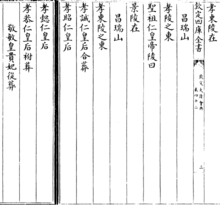 孝東陵在
欽定四庫全書
欽定大清會典
卷四十
三
昌瑞山
孝陵之東
聖祖仁皇帝陵曰
景陵在
昌瑞山
孝東陵之東
孝誠仁皇后合葬
孝昭仁皇后
孝懿仁皇后
孝恭仁皇后祔葬
敬敏皇貴妃從葬